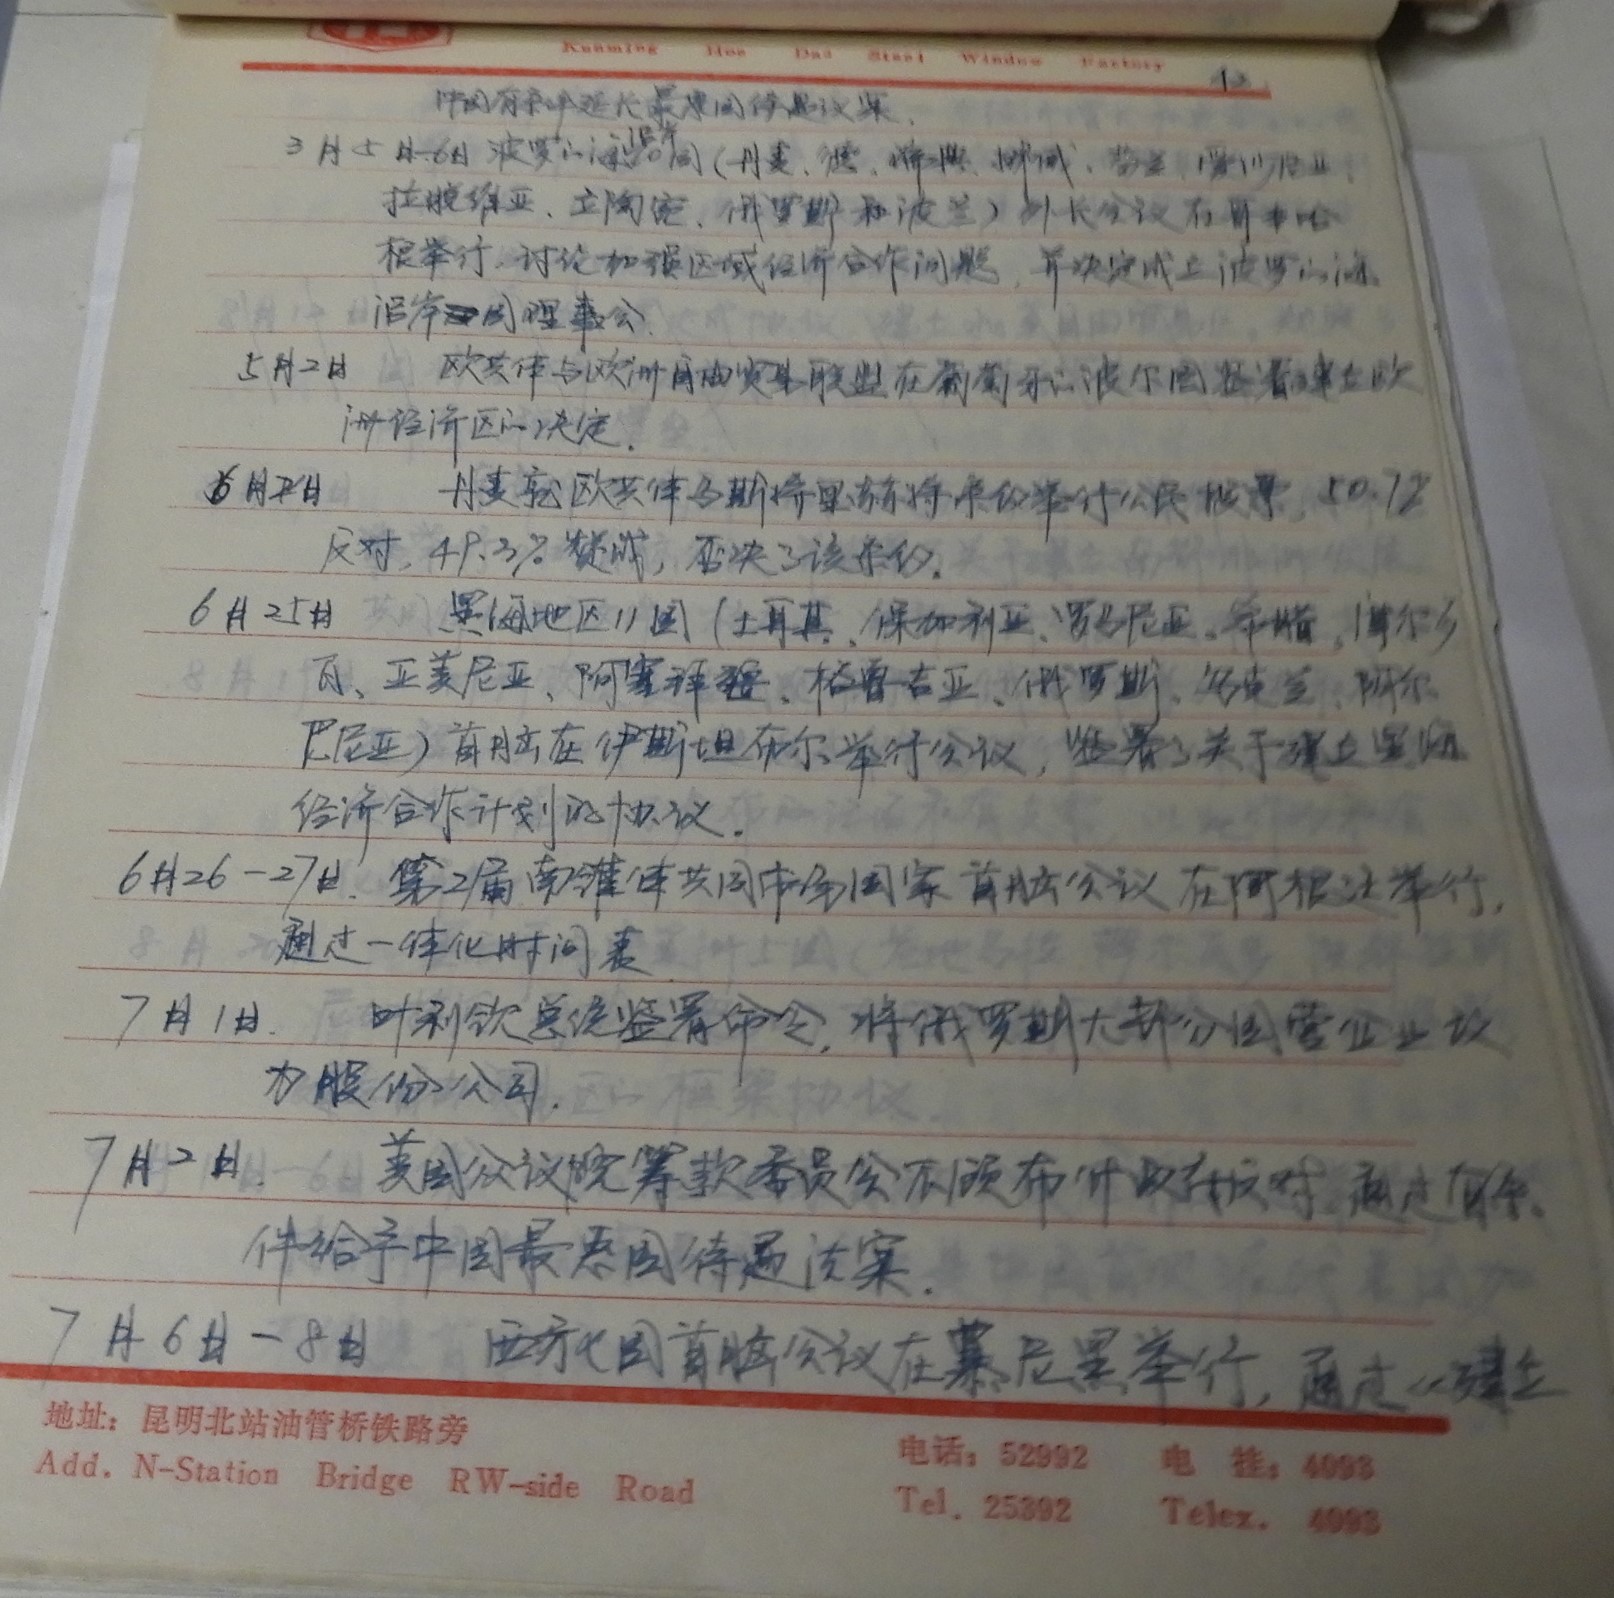 Kunming Hoe Dae Steel Window Factory
中国有条件延长最惠国待遇议案.
3月5日-6日 波罗的海沿岸10国(丹麦、德、瑞典、挪威、芬兰、爱沙尼亚、
拉脱维亚、立陶宛、俄罗斯和波兰)外长会议在哥本哈
根举行,讨论加强区域经济合作问题,并决定成立波罗的海
沿岸国理事会.
5月2日 欧共体与欧洲自由贸易联盟在葡萄牙的波尔图签署建立欧
洲经济区的决定.
6月2日 丹麦就欧共体马斯特里赫特条约举行公民投票,50.7%
反对,49.3%赞成,否决了该条约.
6月25日 黑海地区11国(土耳其、保加利亚、罗马尼亚、希腊、摩尔多
瓦、亚美尼亚、阿塞拜疆、格鲁吉亚、俄罗斯、乌克兰、阿尔
巴尼亚)首脑在伊斯坦布尔举行会议,签署了关于建立黑海
经济合作计划的协议.
6月26-27日. 第2届南锥体共同市场国家首脑会议在阿根廷举行,
通过一体化时间表
7月1日. 叶利钦总统签署命令,将俄罗斯大部分国营企业改
为股份公司.
7月2日. 美国众议院筹款委员会不顾布什政府反对,通过有条
件给予中国最惠国待遇法案.
7月6日-8日 西方七国首脑会议在慕尼黑举行,通过《建立
地址:昆明北站油管桥铁路旁
电话:52992 电 挂:4093
Add. N-Station Bridge RW-side Road
Tel. 25392 Telex. 4093